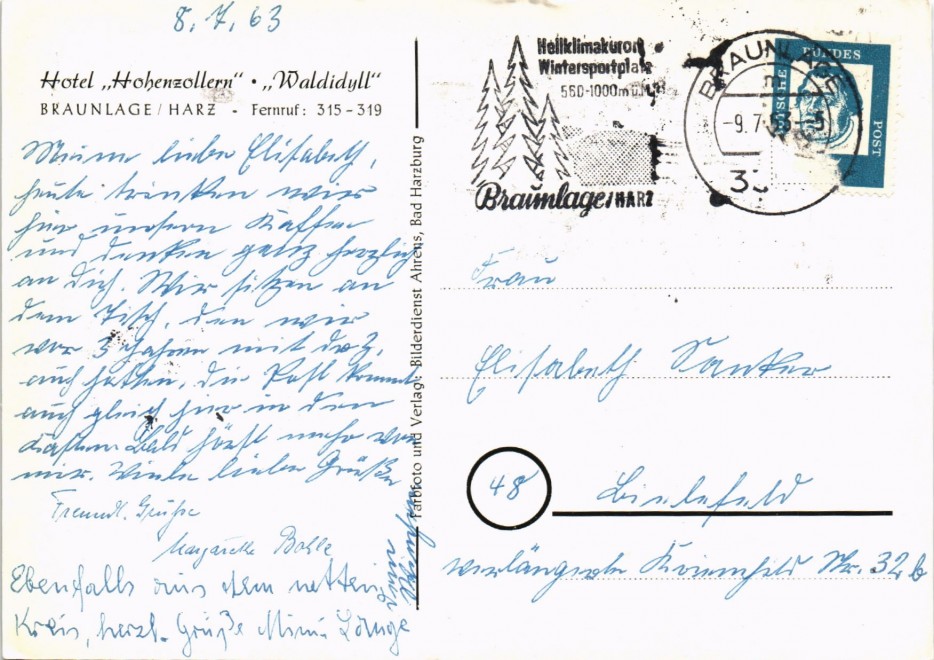 8.7.63
Hotel „Hohenzollern“ · „Waldidyll“
BRAUNLAGE/HARZ - Fernruf: 315-319
Meine liebe Elisabeth,
heute trinken wir
hier unsern Kaffee
und denken ganz herzlich
an Dich. Wir sitzen an
dem Tisch, den wir
vor 3 Jahren mit
auch hatten, die Post kommt
auch gleich hier in den
Kasten. Bald hörst mehr von
mir. Viele liebe Grüße
Freundl. Grüße
Margarethe
Ebenfalls aus dem netten
Kreis, herzl. Grüße Mimi Lange
Farbfoto und Verlag: Bilderdienst Ahrens, Bad Harzburg
Heilklimakurort
Wintersportplatz
560-1000m ü.
Braunlage/HARZ
BRAUNLAGE
-9.7.63-
33
DEUTSCHE
BUNDES
POST
Frau
Elisabeth
48
Bielefeld
verlängerte Str. 32b